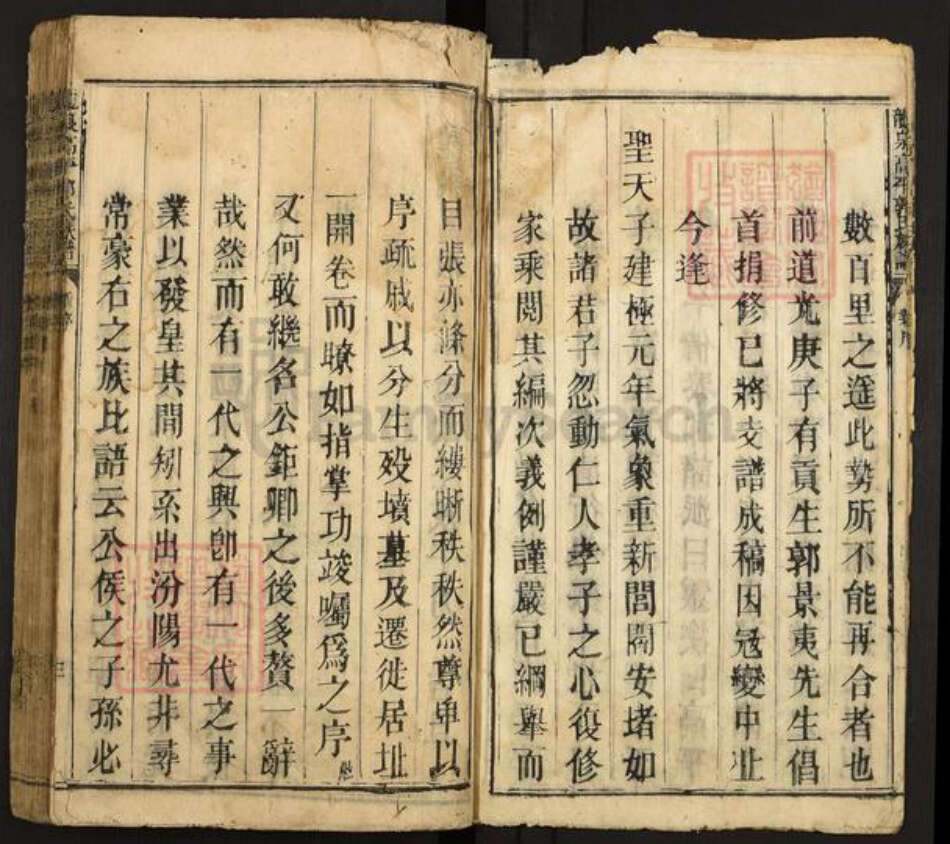 數百里之遥此勢所不能再合者也
前道光庚子有貢生郭景夷先生倡
首捐修已將支譜成稿因冦變中止
今逢
聖天子建極元年氣象重新閭閻安堵如
故諸君子忽動仁人孝子之心復修
家乘閱其編次義例謹嚴已綱舉而
目張亦條分而縷晰秩秩然尊卑以
序疏戚以分生殁墳墓及遷徙居址
一開卷而瞭如指掌功竣囑爲之序
又何敢繼名公鉅卿之後多贅一辭
哉然而有一代之興卽有一代之事
業以發皇其間矧系出汾陽尤非尋
常豪右之族比語云公侯之子孫必